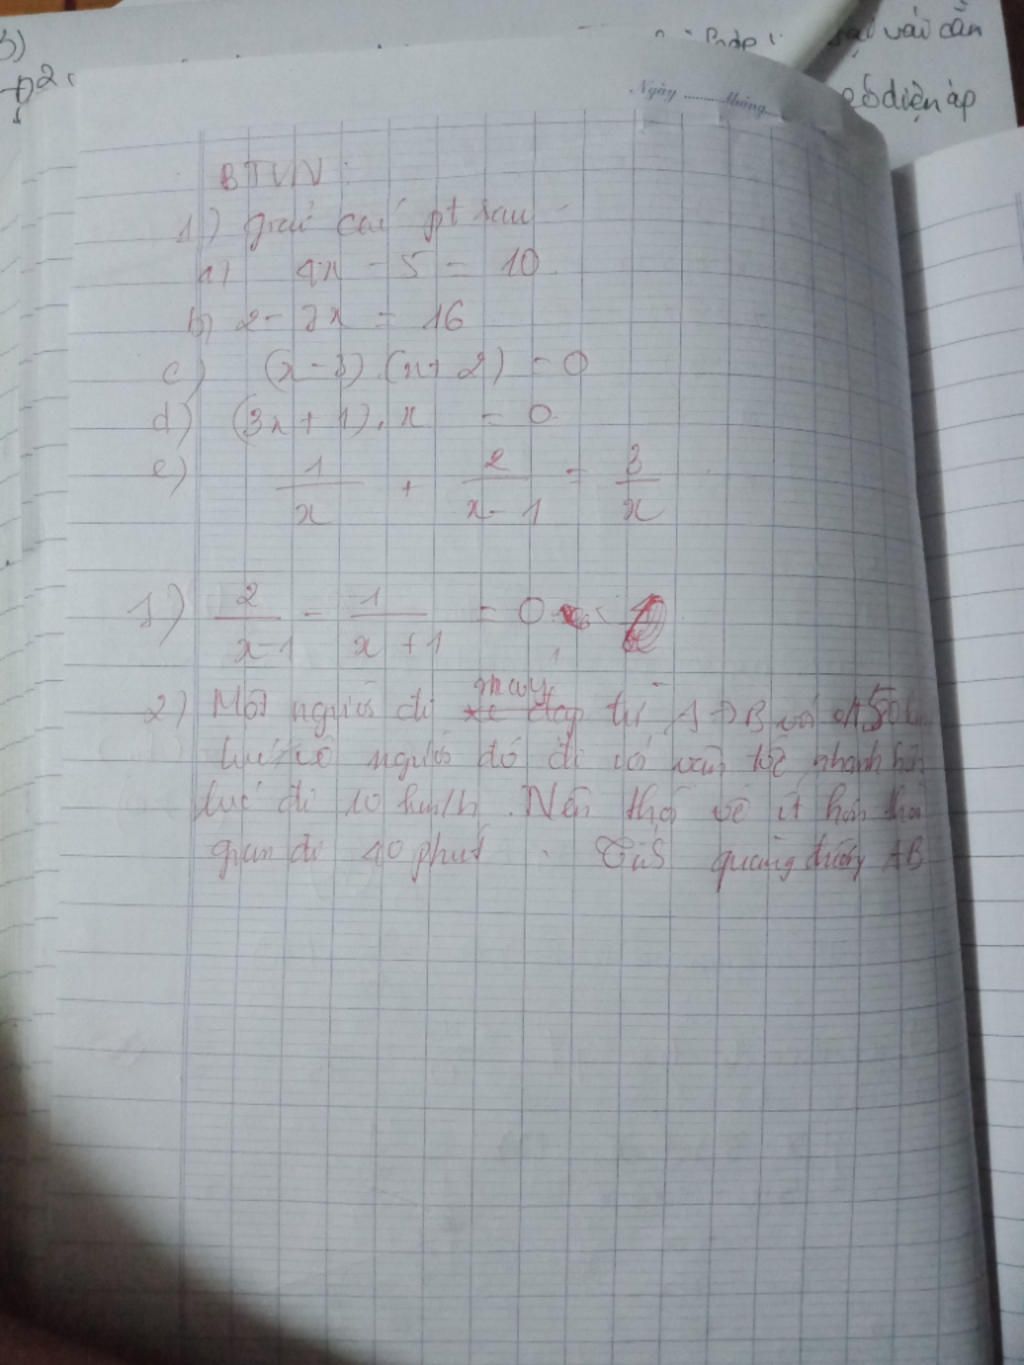 3)
vải cần
số điện áp
Ngày ........ tháng
BTVN :
1) giải các pt sau
a) 4x - 5 = 10
b) 2 - 7x = 16
c) (x - 3).(x + 2) = 0
d) (3x + 1).x = 0
e) 1/x + 2/(x - 1) = 3/x
1) 2/(x - 1) - 1/(x + 1) = 0
2) Một người đi máy từ A → B với 50
lúc về người đó đi với vận tốc nhanh hơn
lúc đi 10 km/h. Nên thời về ít hơn thời
gian đi 40 phút. Tính quãng đường AB